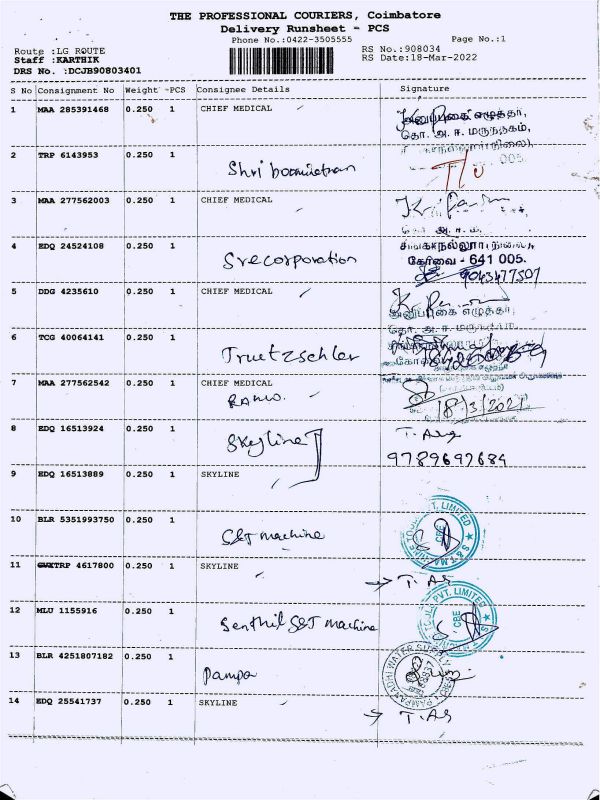 THE PROFESSIONAL COURIERS, Coimbatore
Delivery Runsheet - PCS
Phone No.:0422-3505555 Page No.:1
Route :LG ROUTE RS No.:908034
Staff :KARTHIK RS Date:18-Mar-2022
DRS No. :DCJB90803401
S No Consignment No Weight -PCS Consignee Details Signature
1 MAA 285391468 0.250 1 CHIEF MEDICAL
எழுத்தர்,
தொ. அ. ஈ. மருந்தகம்,
2 TRP 6143953 0.250 1 005.
Shri T/U
3 MAA 277562003 0.250 1 CHIEF MEDICAL
4 EDQ 24524108 0.250 1
Srecorporation கோவை - 641 005.
9043477507
5 DDG 4235610 0.250 1 CHIEF MEDICAL
எழுத்தர்,
6 TCG 40064141 0.250 1
Truetzschler
7 MAA 277562542 0.250 1 CHIEF MEDICAL
18/3/2021
8 EDQ 16513924 0.250 1
Skyline
9789697684
9 EDQ 16513889 0.250 1 SKYLINE
10 BLR 5351993750 0.250 1
S&T machine
PVT. LIMITED
CBE
11 TRP 4617800 0.250 1 SKYLINE
12 MLU 1155916 0.250 1
Senthil S&T machine
PVT. LIMITED
CBE
13 BLR 4251807182 0.250 1
Pampa
WATER SUPPLY
14 EDQ 25541737 0.250 1 SKYLINE